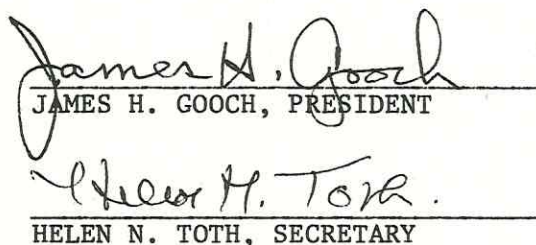 James H. Gooch
JAMES H. GOOCH, PRESIDENT
Helen N. Toth.
HELEN N. TOTH, SECRETARY